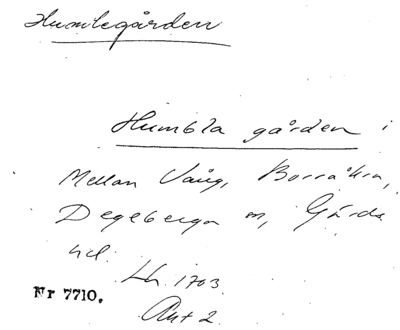 Humlegården
Humbla gården i
Mellan Vång, Borråkra,
Degeberga sn, Gärds
hd.
Lh. 1703.
Akt 2.
Nr 7710.